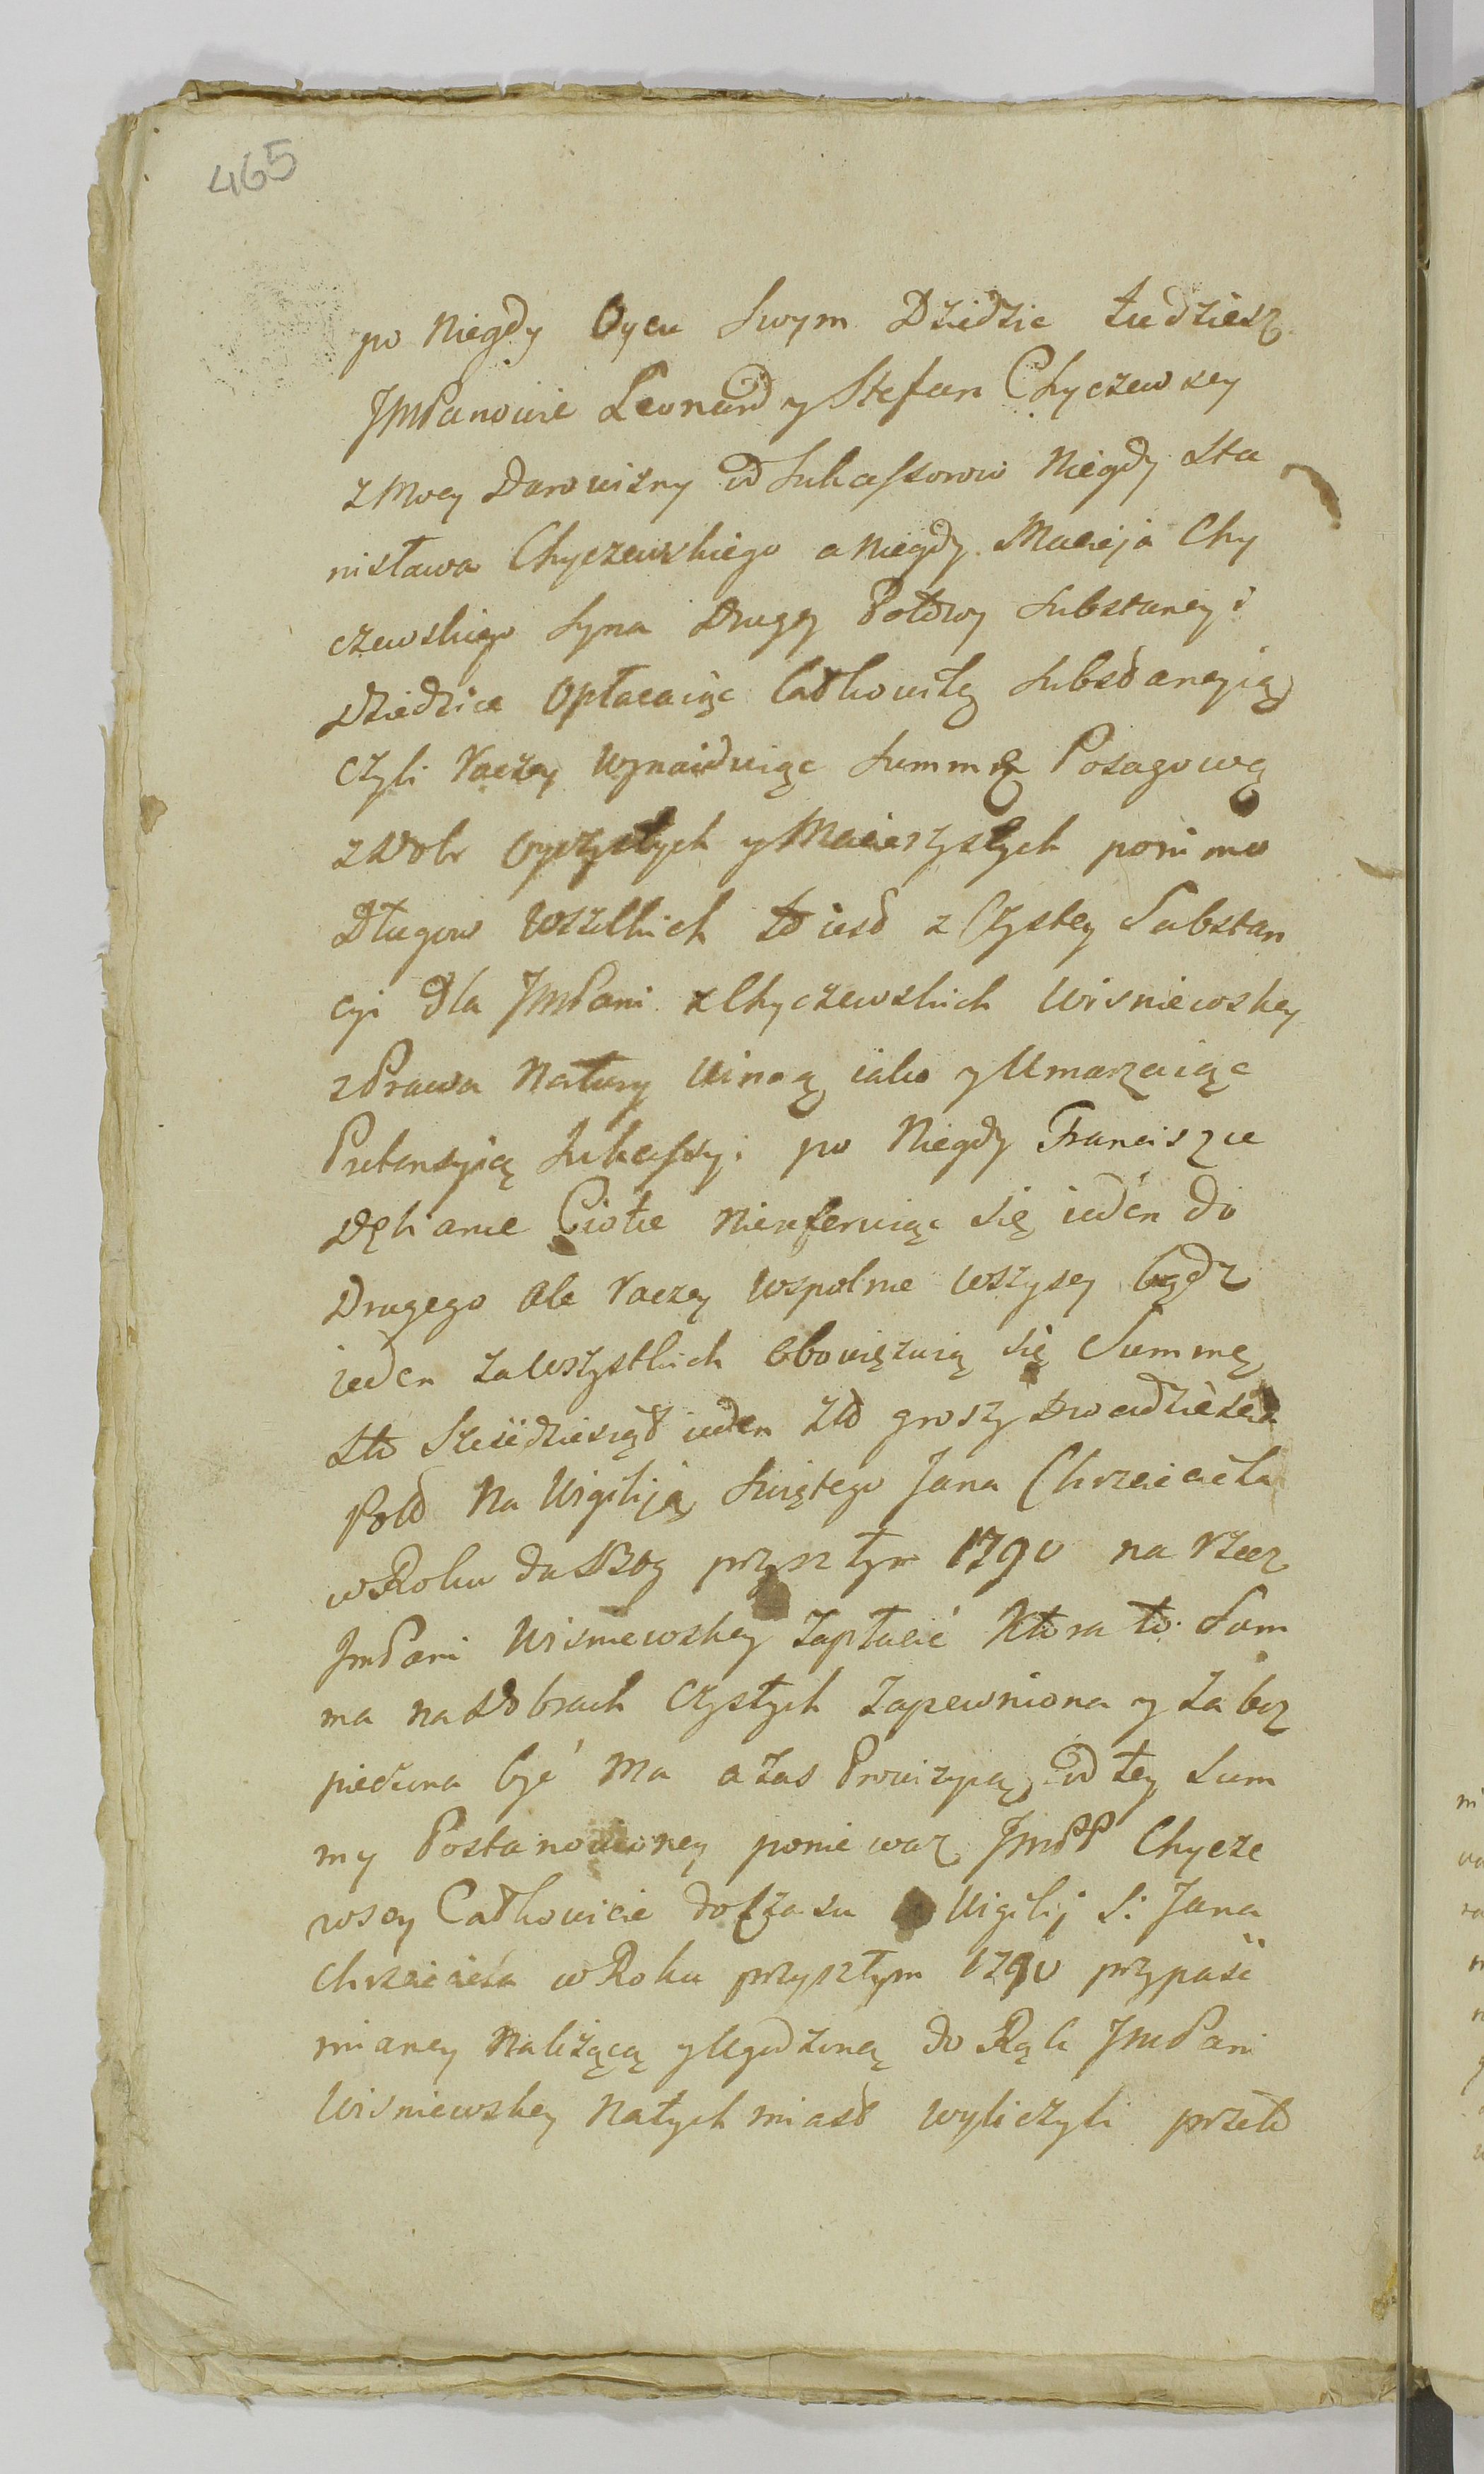 465
po Niegdy Oycu Swym Dziedzic tudziesz
JmPanowie Leonard y Stefan Chyczewscy
z Mocy Darowizny od Sukcessorow Niegdy Sta
nisława Chyczewskiego a Niegdy Macieja Chy
czewskiego Syna Drugey Połowy Substancyi
Dziedzice Opłacaiąc Całkowitą Substancyią
czyli raczey Wynaiduiąc Summę Posagową
z Dobr Oyczystych y Macierzystych pomimo
Długow Wszelkich to iest z Czystey Substan
cyi dla JmPani z Chyczewskich Wisniewskey
z Prawa Natury Winną iako y Umarzaiąc
Pretensyią Sukcessyi po Niegdy Franciszce
Ciotce Niereferuiąc się ieden do
Drugego ale raczey Wspolnie wszyscy bądz
ieden za Wszystkich Obowięzuią się Summę
Sto Szesćdziesiąt ieden Zło groszy Dwadziescia
Pold Na Wigiliją Swiętego Jana Chrzciciela
w Roku da Bog przyszłym 1790 na rzecz
JmPani Wisniewskey Zapłacić Ktora to Sum
ma na Dobrach Czystych Zapewniona y Zabez
pieczona być Ma a zas Prowizyią od tey Sum
my Postanowioney poniewaz JmPP Chycze
wscy Całkowicie do Czasu Wigilij S: Jana
Chrzciciela w Roku przyszłym 1790 przypaść
mianey Należącą y Ugodzoną do Rąk JmPani
Wisniewskey Natychmiast wyliczyli przeto